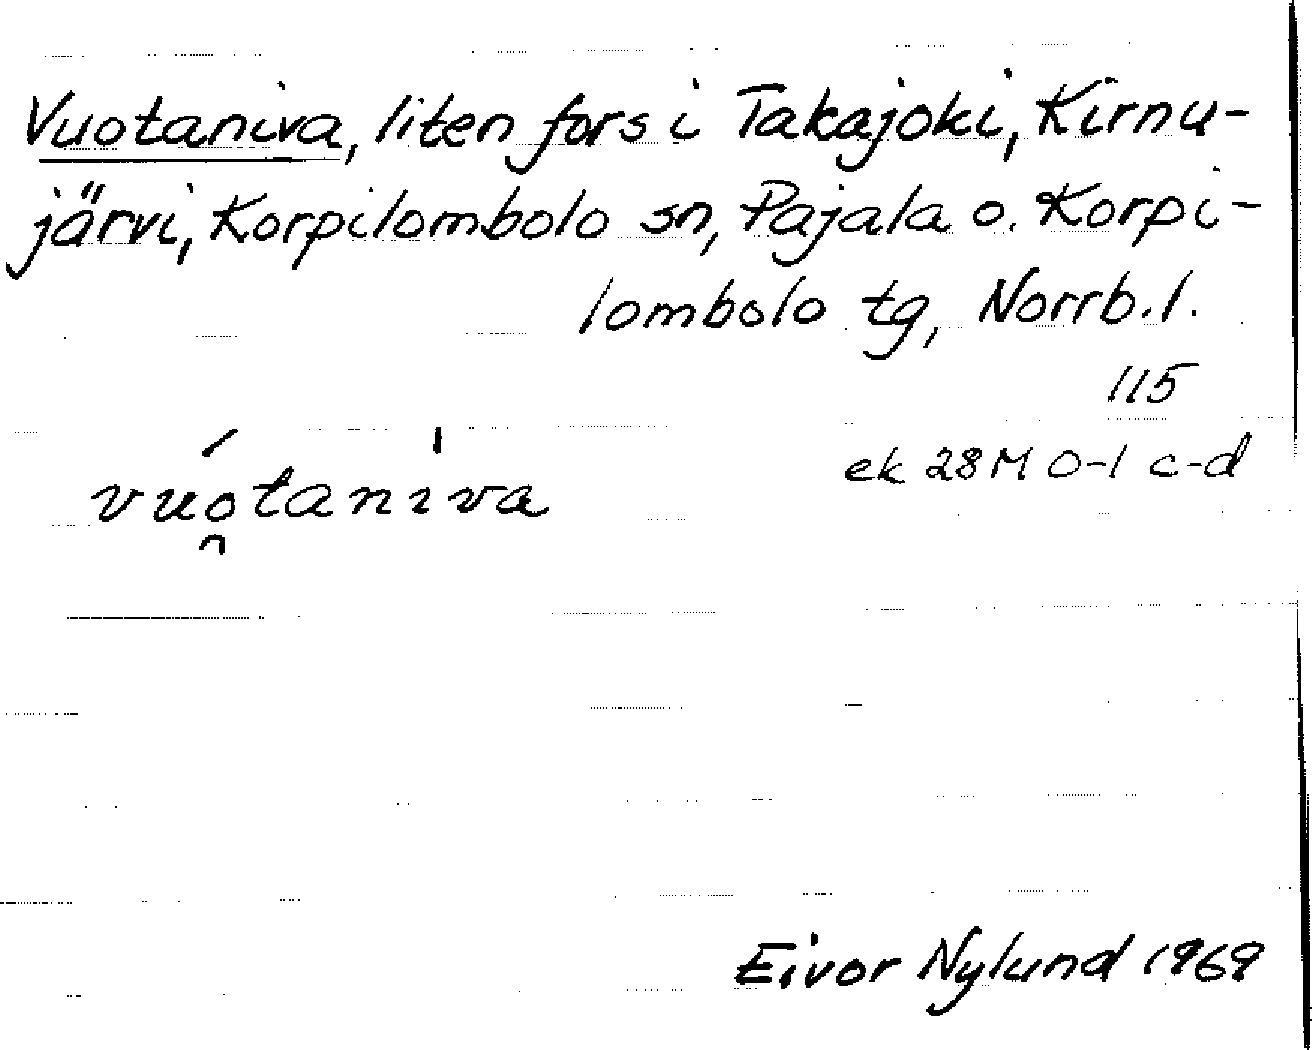 Vuotaniva, liten fors i Takajoki, Kirnu-
järvi, Korpilombolo sn, Pajala o. Korpi-
lombolo tg, Norrb. l.
115
ek 28 M 0-1 c-d
vuó̯taniva
Eivor Nylund 1969